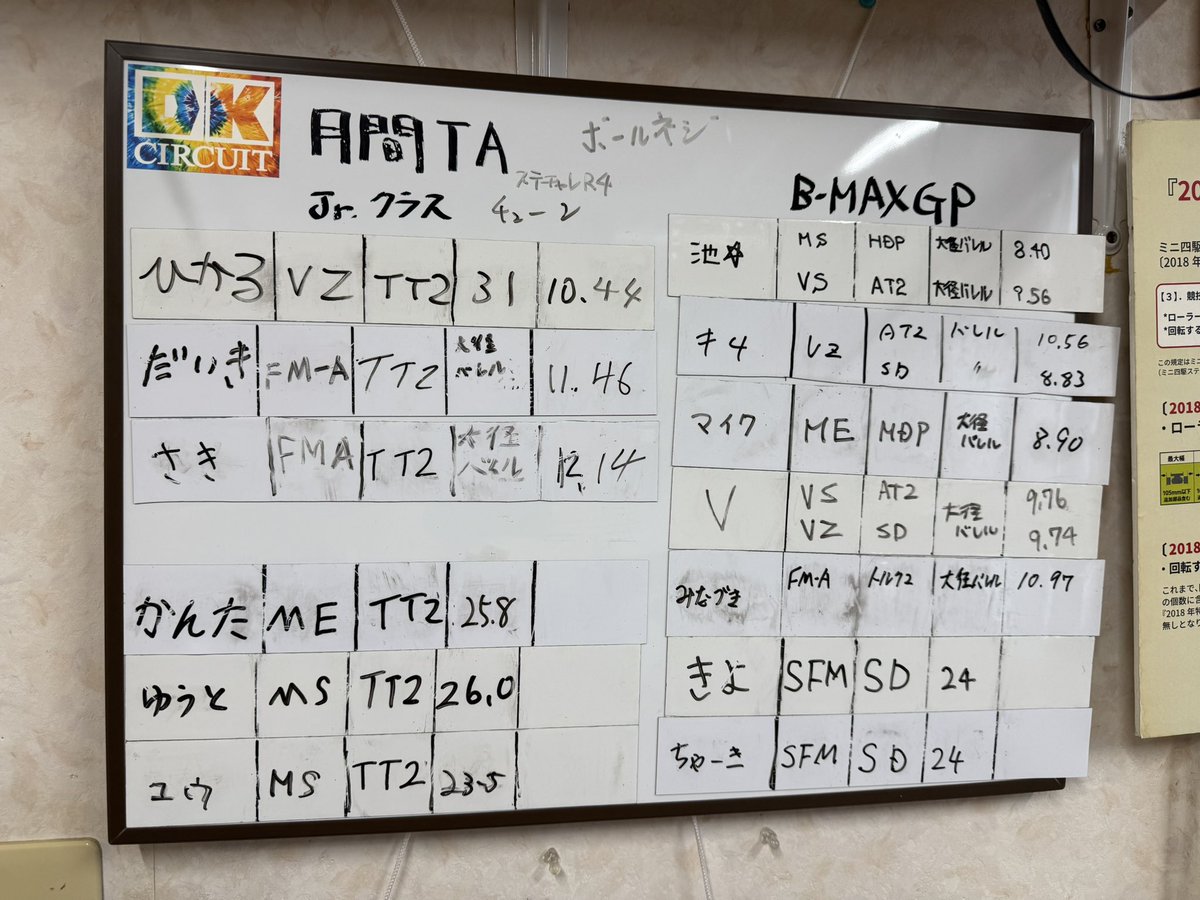 DK
CIRCUIT
月間TA
ボールネジ
Jr.クラス
チューン
ひかる VZ TT2 31 10.44
だいき FM-A TT2 大径バレル 11.46
さき FMA TT2 大径バレル 12.14
かんた ME TT2 25.8
ゆうと MS TT2 26.0
ユウ MS TT2 23.5
B-MAXGP
MS HDP 大径バレル 8.40
VS AT2 大径バレル 9.56
キム VZ AT2 バレル 10.56
SD 〃 8.83
マイク ME HDP 大径バレル 8.90
V VS AT2 大径バレル 9.76
VZ SD 9.74
みなづき FM-A トルク2 大径バレル 10.97
きよ SFM SD 24
ちゃーき SFM SD 24
『20
ミニ四駆
〔2018年
【3】. 競技
*ローラー
*回転する
〔2018
・ローラ
最大幅
105mm以下
〔2018
・回転す
これまで、
の個数に含
『2018年特
無しとなり